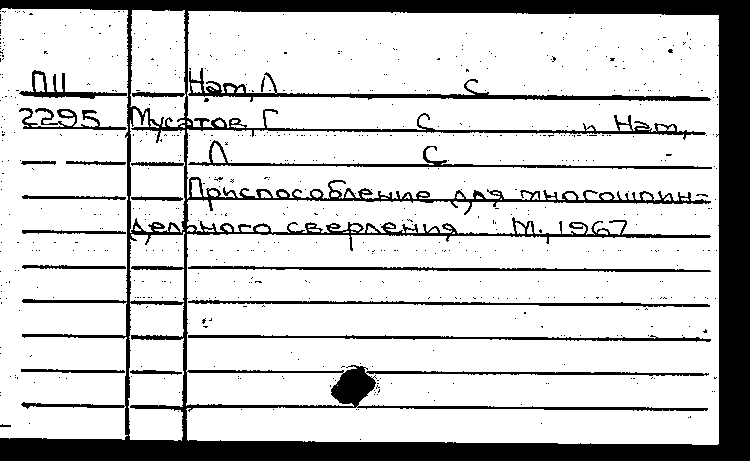 П11 Нат, Л С
2295 Мусатов, Г С и Нат,
Л С
Приспособление для многошпин=
дельного сверления М., 1967